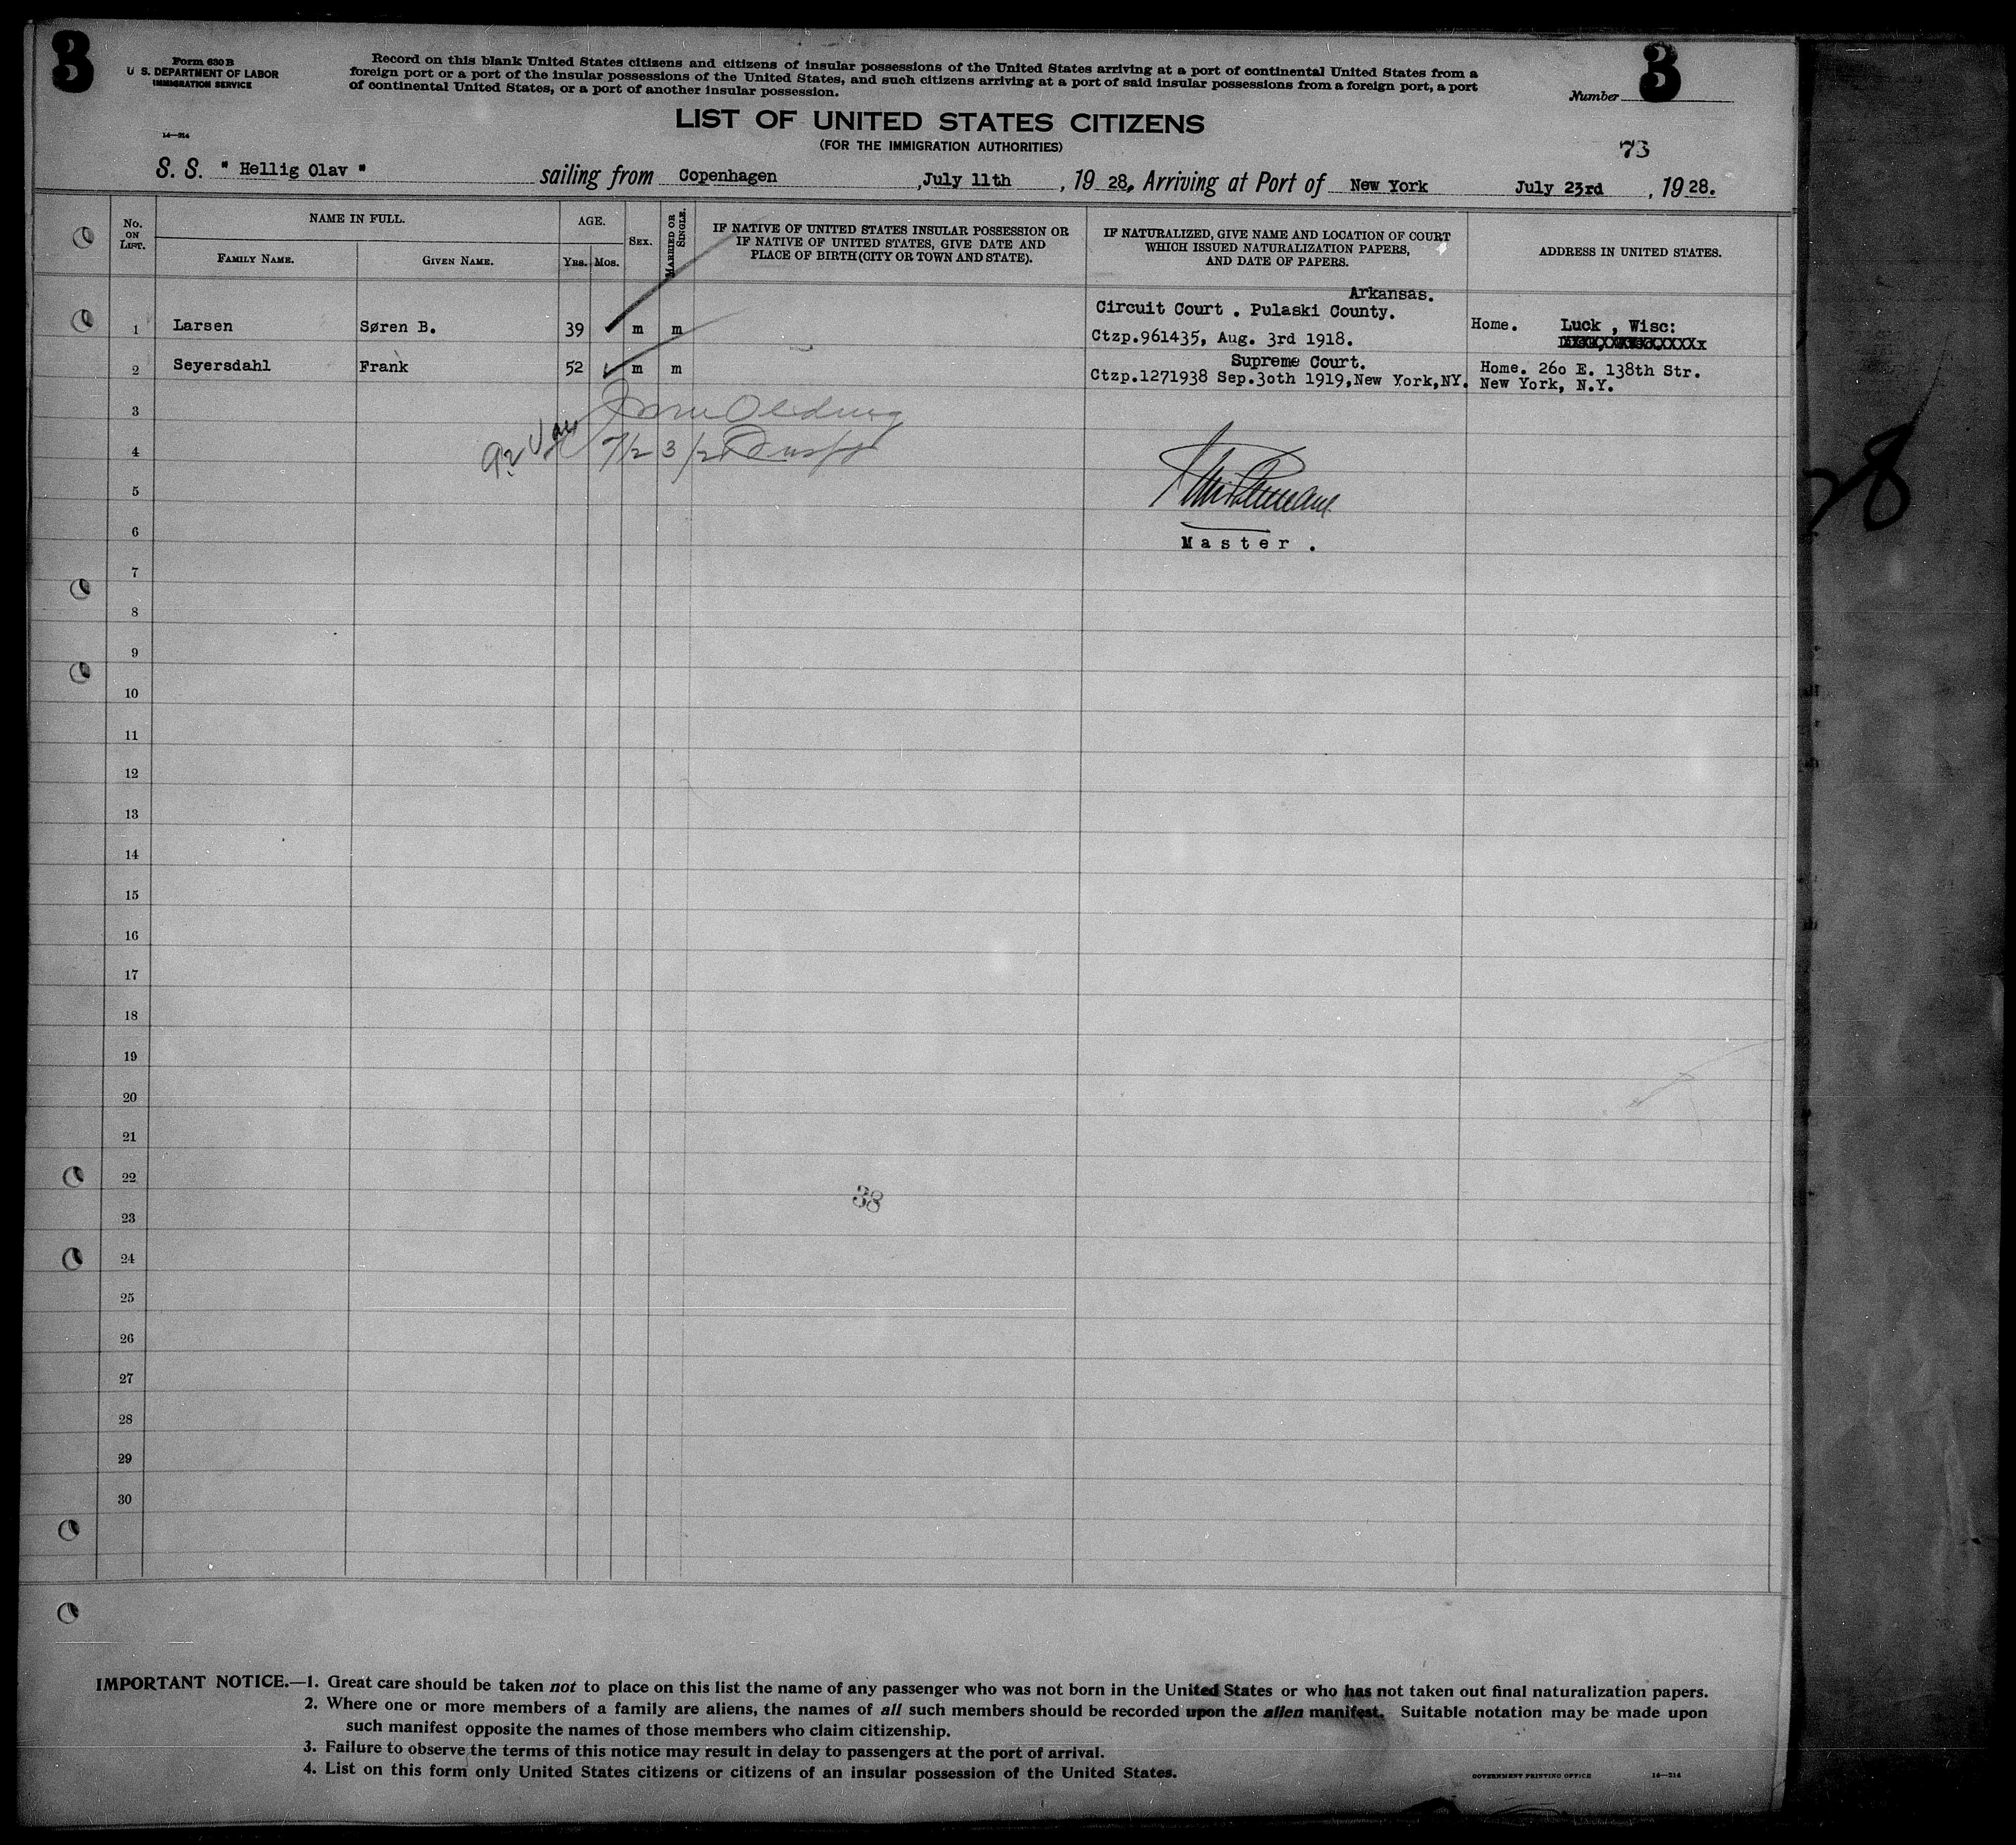 3
Form 630 B
U. S. DEPARTMENT OF LABOR
IMMIGRATION SERVICE
14—214
Record on this blank United States citizens and citizens of insular possessions of the United States arriving at a port of continental United States from a
foreign port or a port of the insular possessions of the United States, and such citizens arriving at a port of said insular possessions from a foreign port, a port
of continental United States, or a port of another insular possession.
Number 3
LIST OF UNITED STATES CITIZENS
(FOR THE IMMIGRATION AUTHORITIES)
73
S. S. " Hellig Olav " sailing from Copenhagen ,July 11th , 19 28, Arriving at Port of New York July 23rd , 19 28.
No. ON LIST.
NAME IN FULL.
FAMILY NAME.
GIVEN NAME.
AGE.
YRS. MOS.
SEX.
MARRIED OR SINGLE.
IF NATIVE OF UNITED STATES INSULAR POSSESSION OR
IF NATIVE OF UNITED STATES, GIVE DATE AND
PLACE OF BIRTH (CITY OR TOWN AND STATE).
IF NATURALIZED, GIVE NAME AND LOCATION OF COURT
WHICH ISSUED NATURALIZATION PAPERS,
AND DATE OF PAPERS.
ADDRESS IN UNITED STATES.
Arkansas.
Circuit Court . Pulaski County.
1 Larsen Søren B. 39 m m Ctzp.961435, Aug. 3rd 1918. Home. Luck , Wisc:
Supreme Court.
2 Seyersdahl Frank 52 m m Ctzp.1271938 Sep.3oth 1919,New York,NY. Home. 26o E. 138th Str.
New York, N.Y.
3
4
5
6
Master .
7
8
9
10
11
12
13
14
15
16
17
18
19
20
21
22
38
23
24
25
26
27
28
29
30
28
IMPORTANT NOTICE.—1. Great care should be taken not to place on this list the name of any passenger who was not born in the United States or who has not taken out final naturalization papers.
2. Where one or more members of a family are aliens, the names of all such members should be recorded upon the alien manifest. Suitable notation may be made upon
such manifest opposite the names of those members who claim citizenship.
3. Failure to observe the terms of this notice may result in delay to passengers at the port of arrival.
4. List on this form only United States citizens or citizens of an insular possession of the United States.
GOVERNMENT PRINTING OFFICE 14—214